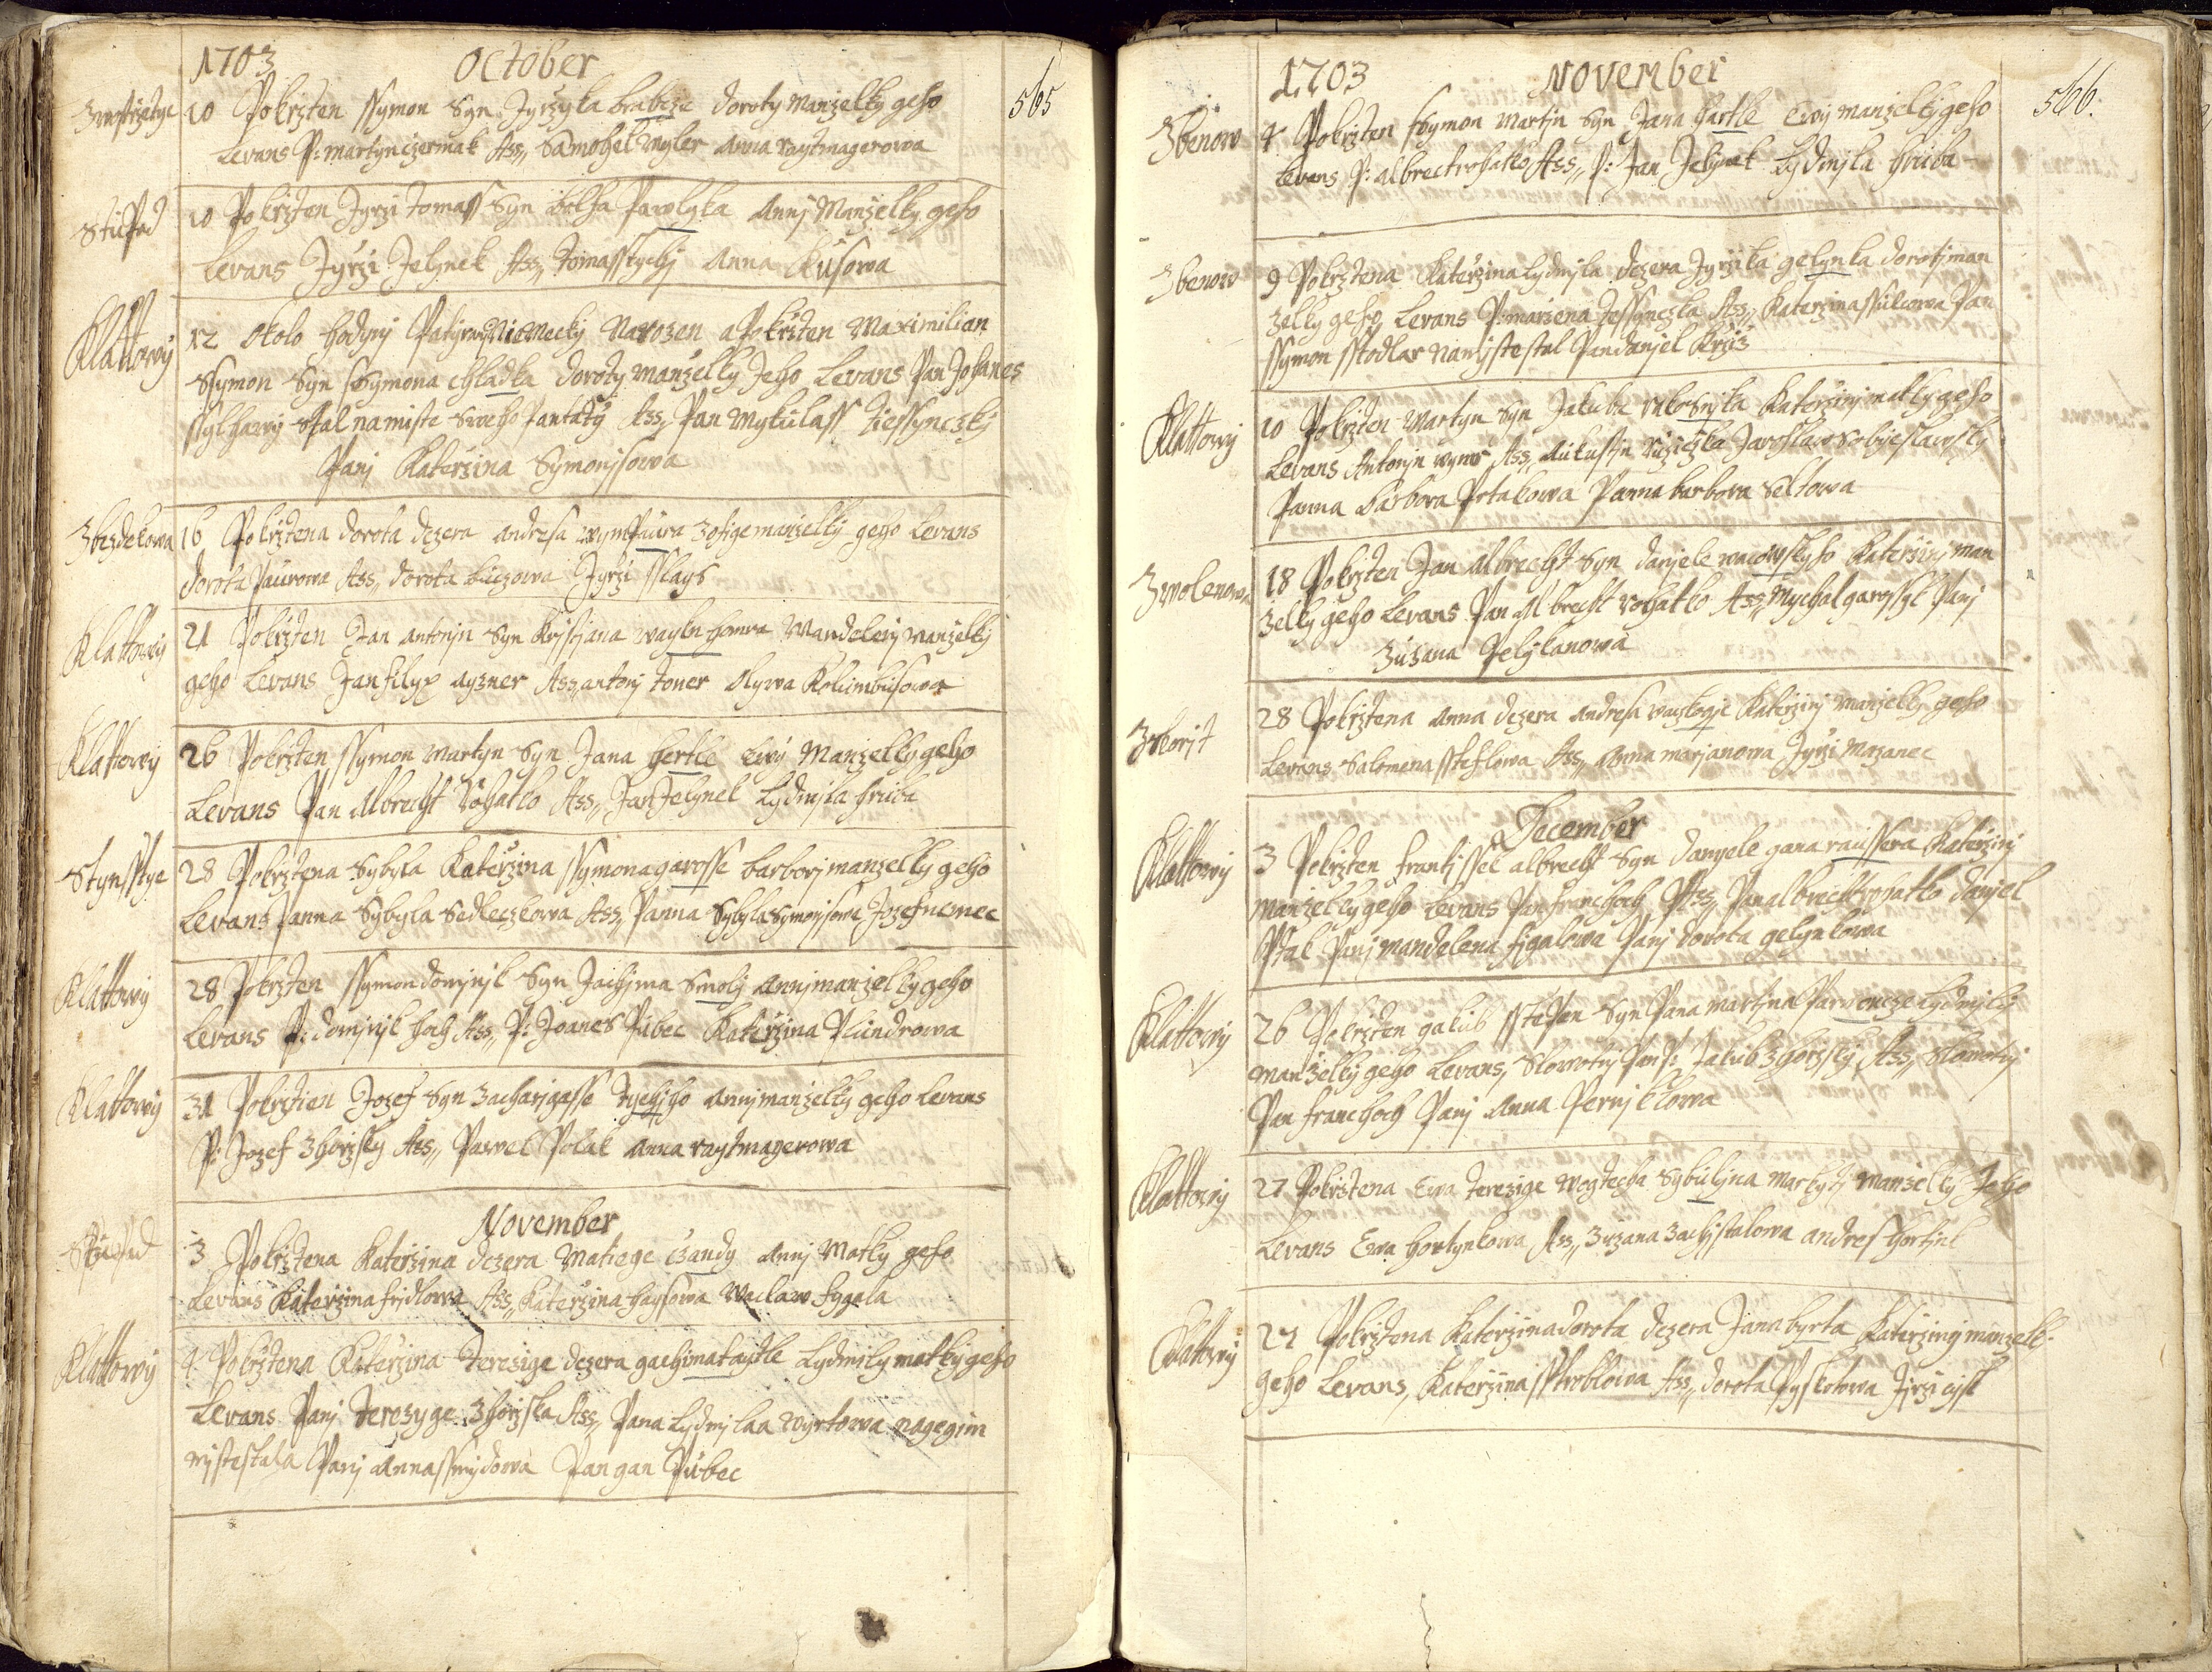 1703 October 565
Zwostrzetye 10 Pokrzten ssymon Syn Jyrzyka brabcze doroty Manzelky geho
Levans P: martyn czermak Ass„ Samohel wyler Anna raytmagerowa
Stupad 10 Pokrzten Jyrzi tomass Syn Pawlyka Annj Manzelky geho
Levans Jyrzi Jelynek Ass„ tomass Anna Kusowa
Klattowy 12 okolo hodyny Niemecky Narozen a Pokrzten Maximilian
Ssymon Syn Ssymona chladka doroty manzelky Jeho Levans Pan Johanes
ssylhawy stal namiste sweho Pantaty Ass„ Pan Mykulass Tiessynczky
Panj Katerzina Symonjsowa
Zbezdekowa 16 Pokrztena dorota dczera andresa zofige manzelky geho Levans
dorota Paurowa Ass„ dorota buczowa Jyrzi sslays
Klattowy 21 Pokrzten Jan Antonjn Syn Krjstjana Mandeleny manzelky
geho Levans Jan filyp ayzner Ass„ antonj toner Olywa Kolumbusowa
Klattowy 26 Pokrzten ssymon Martyn Syn Jana hertle Ewy Manzelky geho
Levans Pan Albrecht Rohatko Ass„ Jan Jelynek Lydmjla hruba
Stynsstye 28 Pokrztena Sybyla Katerzina ssymona garosse barborj manzelky geho
Levans Panna Sybyla Sedleczkowa Ass„ Panna Sybyla Symonjsowa Jozef nemec
Klattowy 28 Pokrzten ssymon domjnjk Syn Jachjma Smolj Annj manzelky geho
Levans P: domjnjk hoch Ass„ P: Joanes Pubec Katerzina Plundrowa
Klattowy 31 Pokrztien Jozef Syn Zacharjgasse tycheho Annj manzelky geho Levans
P: Jozef Zhorzsky Ass„ Pawel Polak Anna raytmagerowa
November
Stupad 3 Pokrztena Katerzina dczera Matiege czandy Annj Matky geho
Levans Katerzina frjdlowa Ass„ Katerzina haysowa Waclaw fygala
Klattowy 4 Pokrztena Katerzina Terezige dczera gachjma taytle Lydmily matky geho
Levans Panj Terezyge Zhorzska Ass„ Pana Lydmjlaa wyrtowa nagegim
mjste stala Panj Anna ssmydowa Pan gan Pubec
1703 November 566.
Zbenow 4 Pokrzten ssymon Martjn Syn Jana hartle Ewy manzelky geho
Levans P: albrecht rohatko Ass„ P: Jan Jelynek Lydmjla hruba
Zbenow 9 Pokrztena Katerzina lydmjla dczera Jyrzika gelynka dorotj man
zelky geho Levans P: marzena tessynczka Ass„ Katerzina ssulcowa Pan
ssymon sstodlar na mjste stal Pan danjel Kryz
Klattowy 10 Pokrzten Martyn Syn Jakuba Katerzinj matky geho
Levans Antonjn Ass„ Aukustjn Ruziczka Jaroslaw sobyeslawsky
Panna Barbora Ptakowa Panna barbora Seltowa
Zwolenowa 18 Pokrzten Jan Albrecht Syn danjele wacowskyho Katerzinj man
zelky geho Levans Pan Albrecht rohatko Ass„ Mychal garossyk Panj
Zuzana Pelykanowa
Zborjt 28 Pokrztena Anna dczera andresa Katerzinj manzelky geho
Levans Salomena ssteflowa Ass„ Anna marjanowa Jyrzi Mazanec
December
Klattowy 3 Pokrzten frantissek albrecht Syn danyele gana raussera Katerzinj
manzelky geho Levans Pan franc hoch Ass„ Pan albrecht rohatko danjel
sstal Panj mandelena figalowa Panj dorota gelynkowa
Klattowy 26 Pokrzten gakub sstepan Syn Pana martjna Parwoncze lydmjly
manzelky geho Levans, Slowotny Pan P: Jakub Zhorzsky Ass„ Slowotny
Pan franc hoch Panj Anna Pernjklowa
Klattowy 27 Pokrztena Ewa terezige wogtecha Sybuljna markyty manzelky Jeho
Levans Ewa hortynkowa Ass„ Zuzana Zachystalowa andres hortjnk
Klattowy 27 Pokrztena Katerzina dorota dczera Jana byrta Katerziny manzelk.
geho Levans, Katerzina sstroblowa Ass„ dorota Pyskotowa Jyrzi cysl